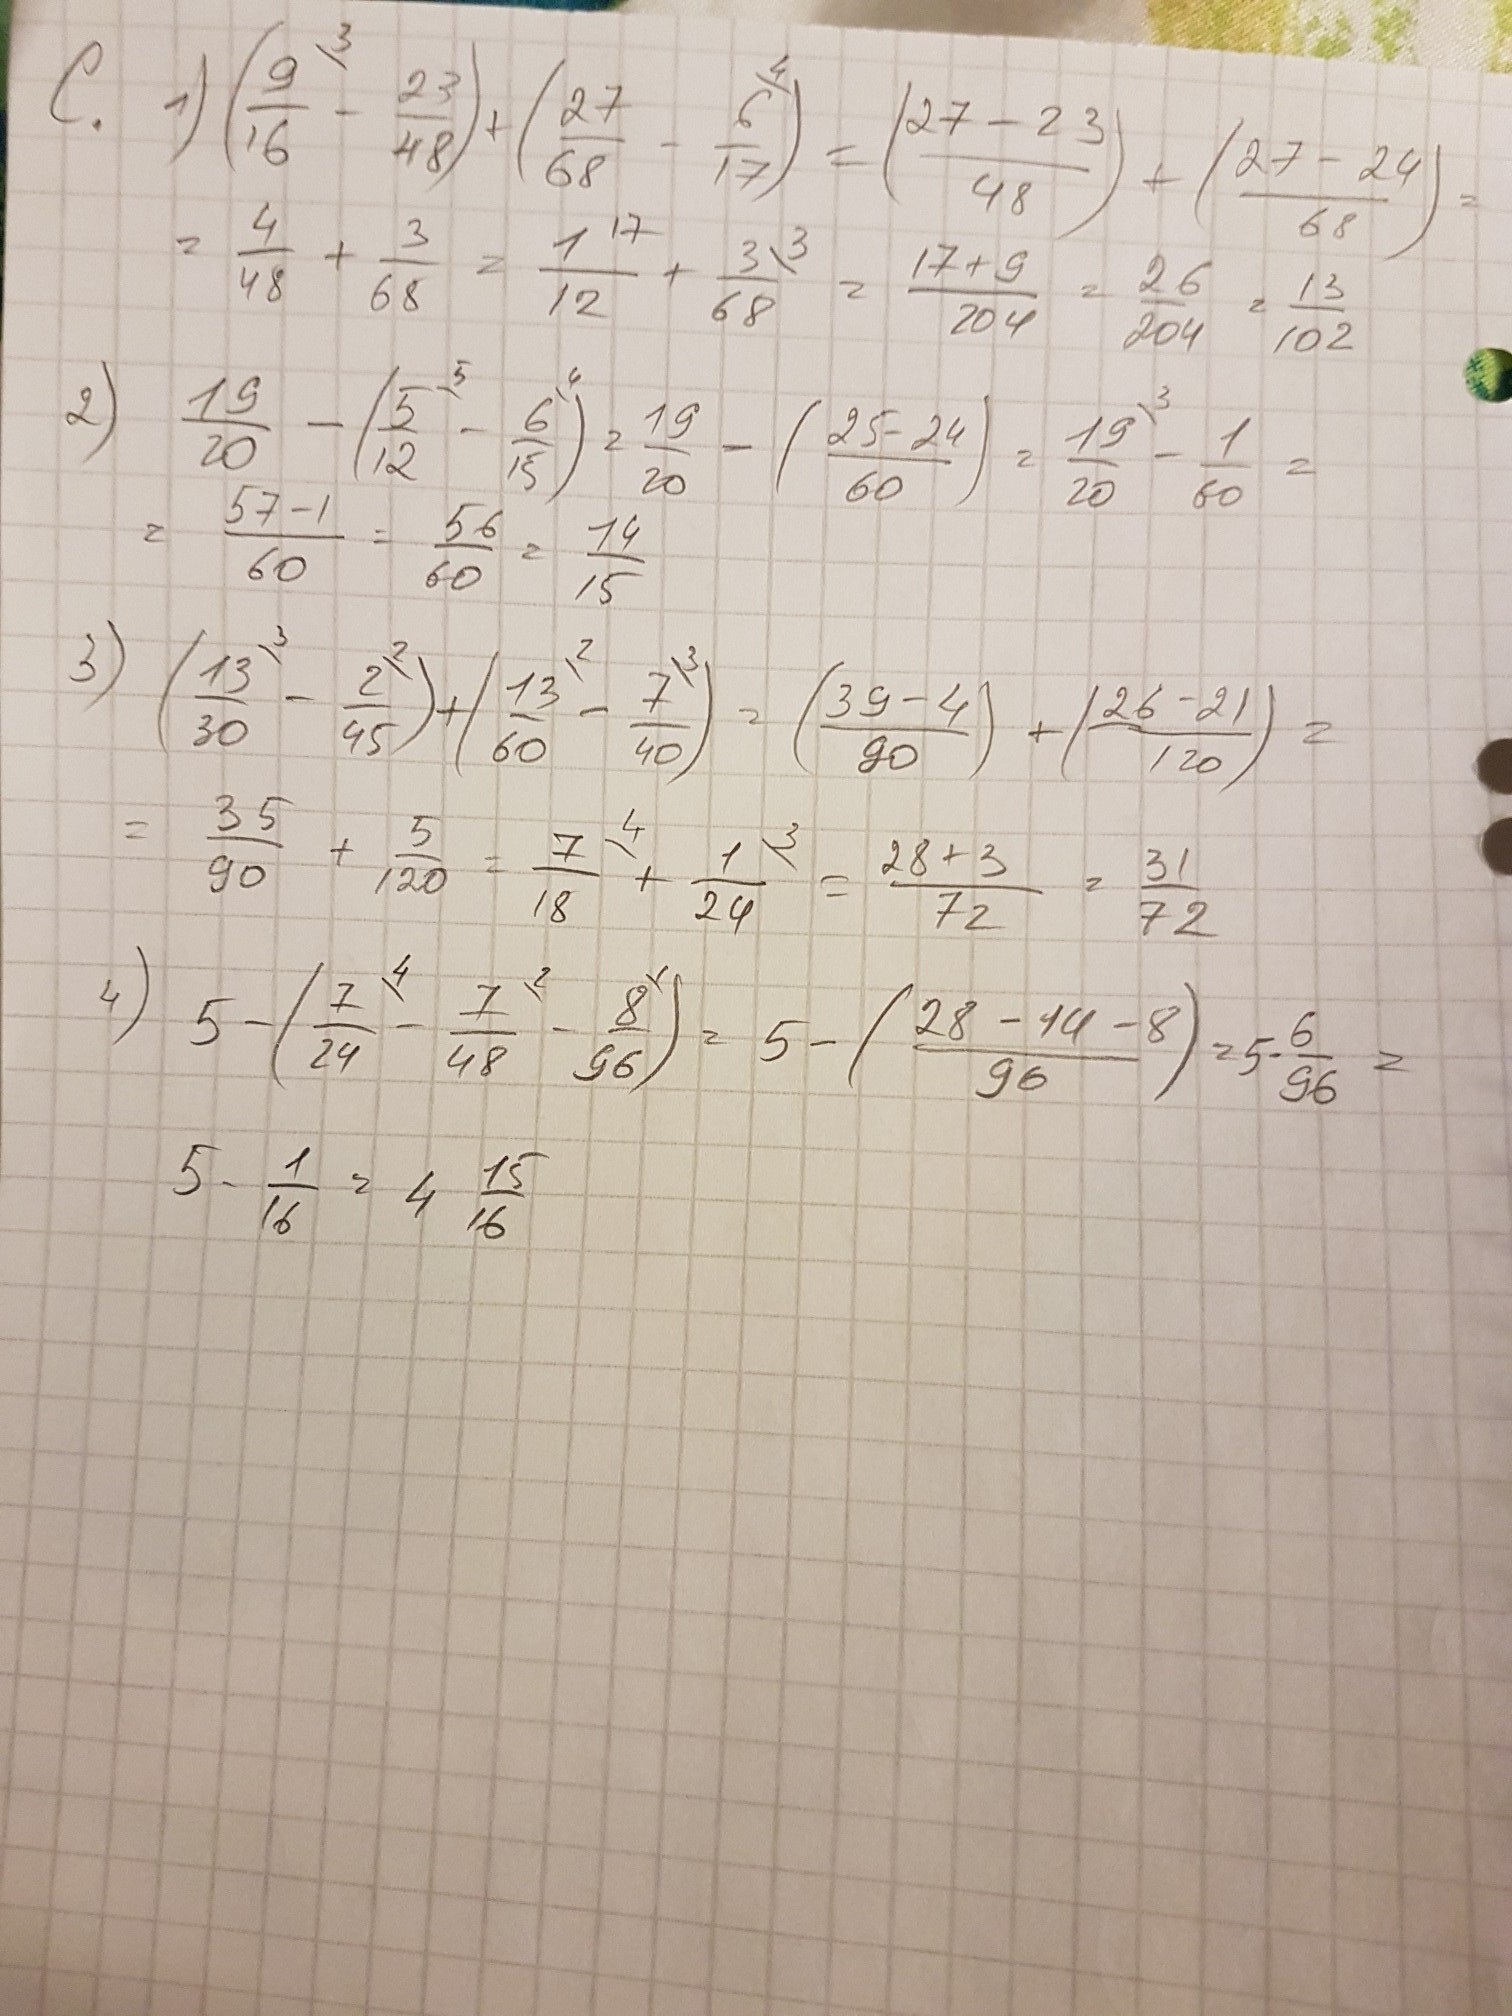 C. 1) (9/16 \3 - 23/48) + (27/68 - 6/17 \4) = (27 - 23/48) + (27 - 24/68) =
= 4/48 + 3/68 = 1/12 17 + 3/68 \3 = 17+9/204 = 26/204 = 13/102
2) 19/20 - (5/12 \5 - 6/15 \4) = 19/20 - (25-24/60) = 19/20 \3 - 1/60 =
= 57-1/60 = 56/60 = 14/15
3) (13/30 \3 - 2/45 \2) + (13/60 \2 - 7/40 \3) = (39-4/90) + (26-21/120) =
= 35/90 + 5/120 = 7/18 \4 + 1/24 \3 = 28+3/72 = 31/72
4) 5 - (7/24 \4 - 7/48 \2 - 8/96 \1) = 5 - (28-14-8/96) = 5-6/96 =
5 - 1/16 = 4 15/16